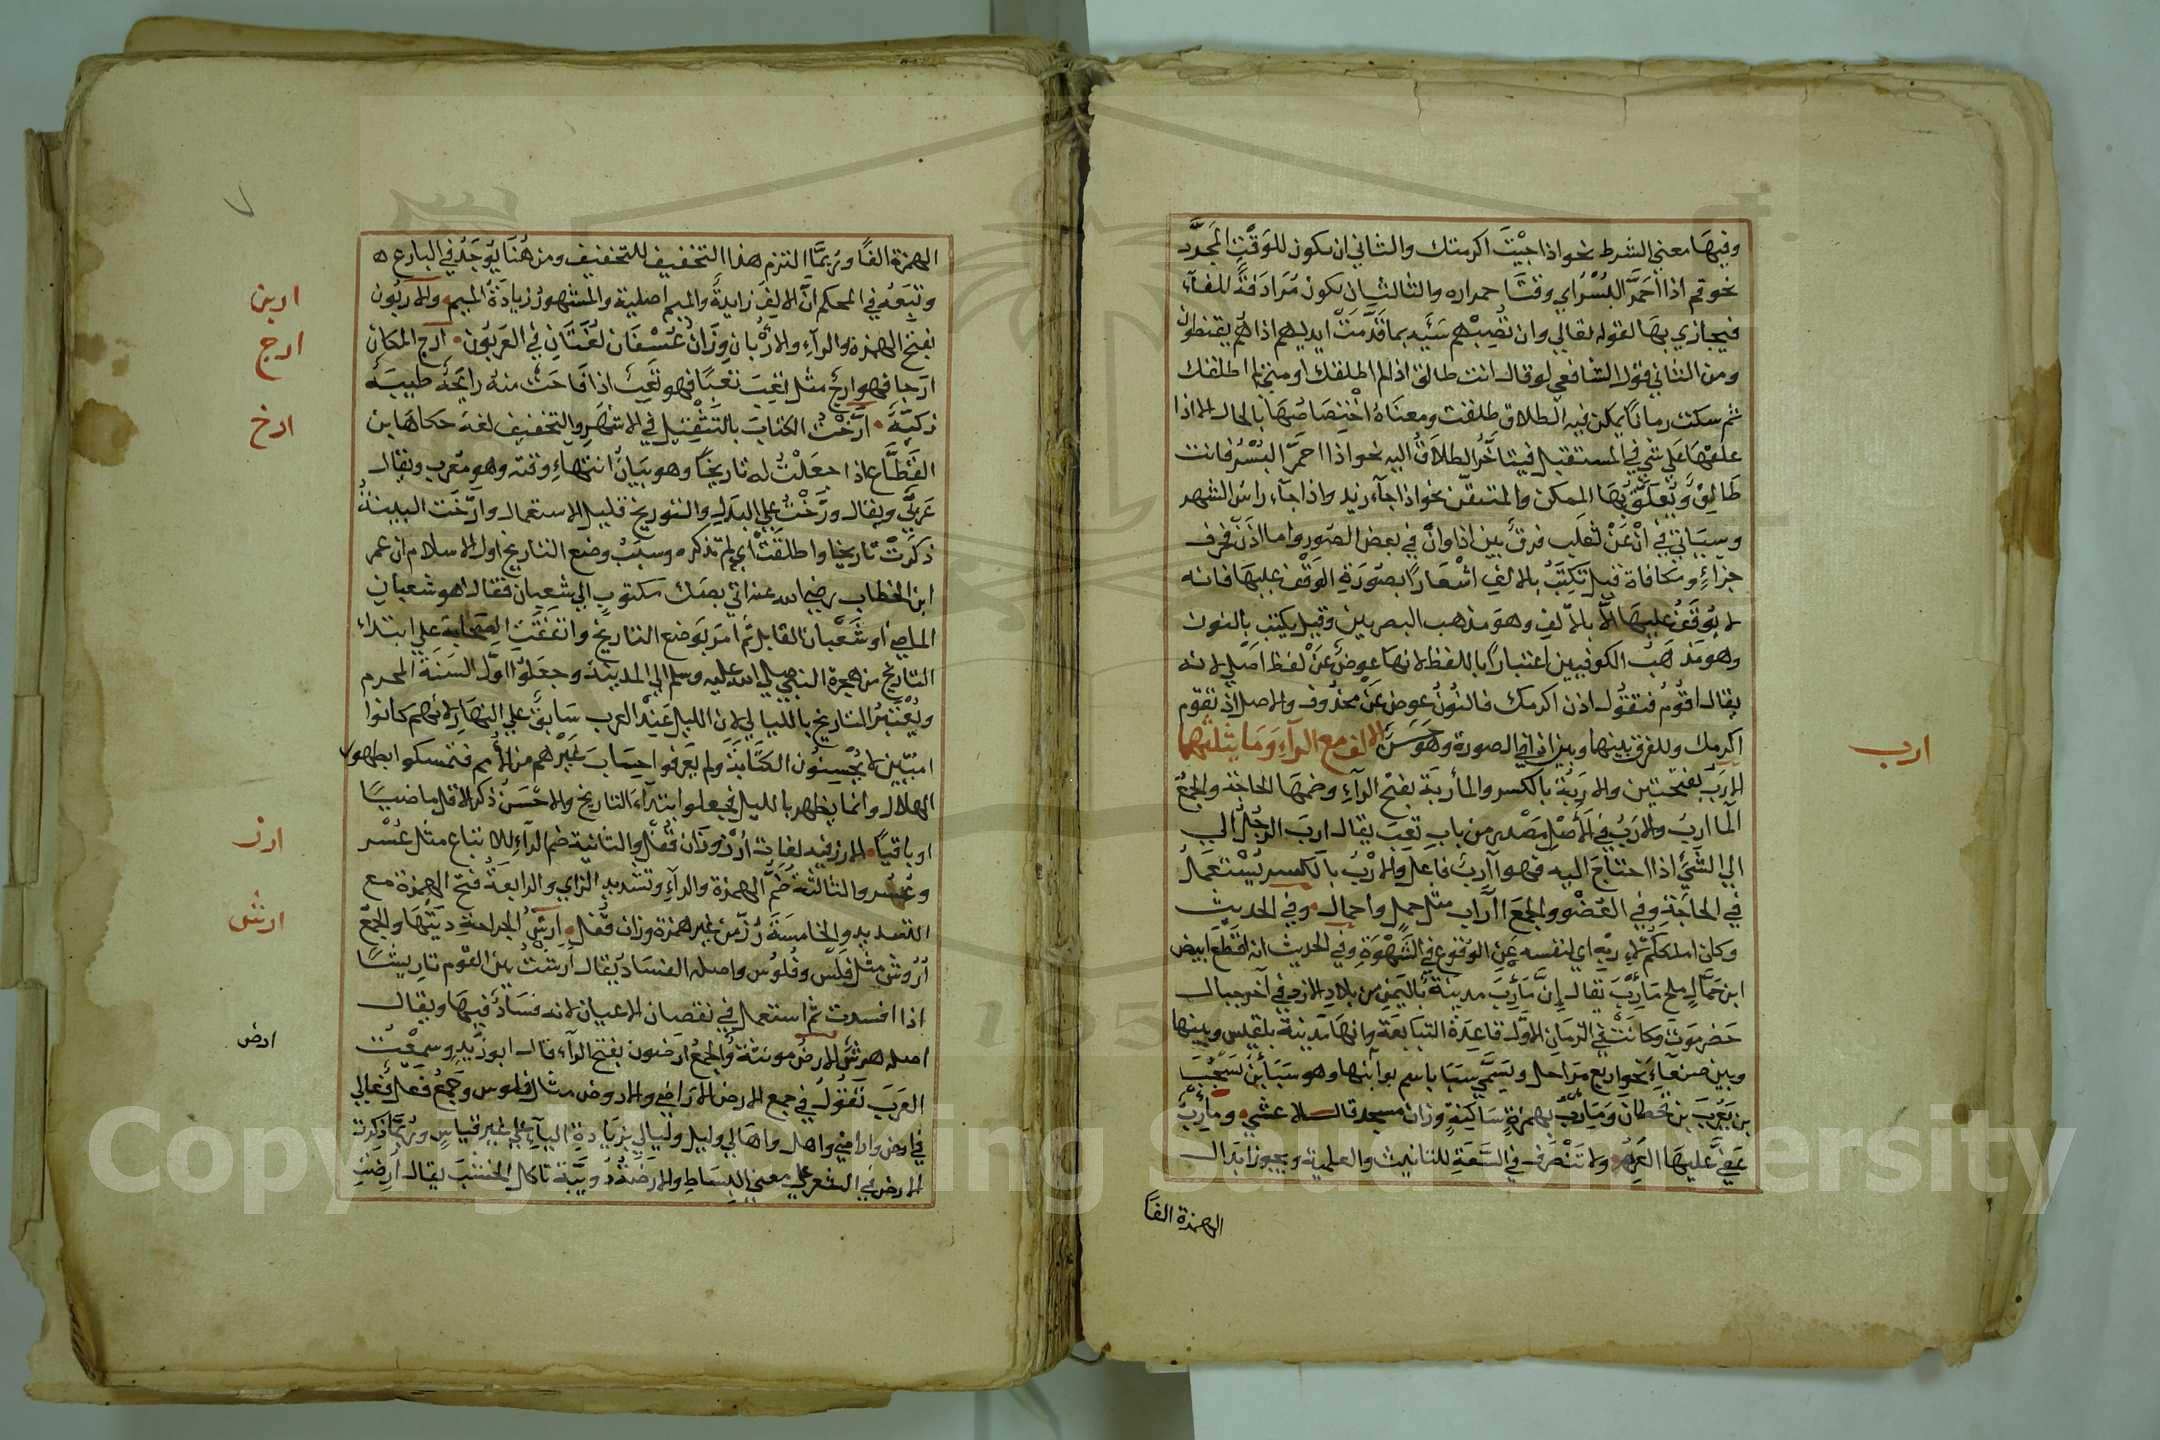 وفيها معني الشرط نحو اذا جيت اكرمتك والثاني ان يكون للوقت المجرد
نحو قم اذا احمر البسر اي وقت احمراره والثالث ان يكون مرادفة للفآء
فيجازي بها لقوله تعالي وان تصبهم سيئه بما قدمت ايديهم اذا هم يقنطون
ومن الثاني قول الشافعي لو قال انت طالق اذا لم اطلقك او متي لم اطلقك
ثم سكت زمانا يمكن فيه الطلاق طلقت ومعناه اختصاصها بالحال الا اذا
علقها علي شي في المستقبل فيتاخر الطلاق اليه نحو اذا احمر البسر فانت
طالق ويعلق بها الممكن والمتيقن نحو اذا جآء زيد واذا جآء راس الشهر
وسياتي في ان عن ثعلب فرق بين اذا وان في بعض الصور واما اذن فحرف
جزاء ومكافاة قيل تكتب بالالف اشعارا بصورة الوقف عليها فانه
لا يوقف عليها الا بالالف وهو مذهب البصريين وقيل يكتب بالنون
وهو مذهب الكوفيين اعتبارا باللفظ لانها عوض عن لفظ اصلي لانه
يقال اقوم فتقول اذن اكرمك فالنون عوض عن محذوف والاصل اذ تقوم
اكرمك وللفرق بينها وبين اذا في الصورة وهو حسن الالف مع الرآء وما يثلثهما
الارب بفتحتين والاربة بالكسر والمأربة بفتح الرآء وضمها الحاجة والجمع
المآرب والارب في الاصل مصدر من باب تعب يقال ارب الرجل الي
الي الشيء اذا احتاج اليه فهو آرب فاعل والارب بالكسر يستعمل
في الحاجة وفي العضو والجمع اآراب مثل حمل واحمال وفي الحديث
وكان املككم لاربه اي لنفسه عن الوقوع في الشهوة وفي الحديث انه اقطع ابيض
ابن حمال ملح مأرب يقال إن مأرب مدينة باليمن من بلاد الازد في آخر جبال
حضرموت وكانت في الزمان الاول قاعدة التبابعة وانها مدينة بلقيس وبينها
وبين صنعآء نحو اربع مراحل ويسمي سبا باسم بوابنها وهو سبأ بن يشجب
بن يعرب بن قحطان ومأرب بهمزة ساكنة وزان مسجد قال الاعشي ومأرب
عفي عليها العرم ولا تنصرف في السعة للتانيث والعلمية ويجوز ابدال
الهمزة الفا
ارب
الهمزة الفا وربما التزم هذا التخفيف للتخفيف ومن هنا يوجد في البارع ه
وتبعه في المحكم ان الالف زايدة والميم اصلية والمشهور زيادة الميم والاربون
بفتح الهمزة والرآء والاربان وزان عسفان لغتان في العربون ارج المكان
ارجا فهو ارج مثل تعب تعبا فهو تعب اذا فاحت منه رايحة طيبة
زكية ارخت الكتاب بالتثقيل في الاشهر والتخفيف لغة حكاها بن
القطاع اذا جعلت له تاريخا وهو بيان انتهاء وقته وهو معرب ويقال
عربي ويقال ورخت علي البدل والتوريخ قليل الاستعمال وارخت البينة
ذكرت تاريخا واطلقت اي لم تذكره وسبب وضع التاريخ اول الاسلام ان عمر
ابن الخطاب رضي الله عنه اتي بصك مكتوب الي شعبان فقال اهو شعبان
الماضي او شعبان القابل ثم امر بوضع التاريخ واتفقت الصحابة علي ابتداء
التاريخ من هجرة النبي صلي الله عليه وسلم الي المدينة وجعلوا اول السنة المحرم
ويعتبر التاريخ بالليالي لان الليل عند العرب سابق علي النهار لانهم كانوا
اميين لا يحسنون الكتابة ولم يعرفوا حساب غيرهم من الامم فتمسكوا بظهور
الهلال وانما يظهر بالليل فجعلوا ابتدآء التاريخ والاحسن ذكر الاقل ماضيا
او باقيا الارز فيه لغات ارز وزان قفل والثانية ضم الرآء للاتباع مثل عسر
وعسر والثالثة ضم الهمزة والرآء وتشديد الزاي والرابعة فتح الهمزة مع
التشديد والخامسة رز من غير همزة وزان قفل ارش الجراحة ديتها والجمع
اروش مثل فلس وفلوس واصله الفساد يقال ارشت بين القوم تاريشا
اذا افسدت ثم استعمل في نقصان الاعيان لانه فساد فيها ويقال
اصله هرش الارض مونثة والجمع ارضون بفتح الرآء قال ابو زيد وسمعت
العرب تقول في جمع الارض الاراضي والاروض مثال فلوس وجمع فعل فعالي
في ارض واراضي واهل واهالي وليل وليالي بزيادة اليآء علي غير قياس وربما ذكرت
الارض في الشعر علي معني البساط والارضة دويبة تاكل الخشب يقال ارضت
ارٮن
ارج
ارخ
ارز
ارش
ارض
Copyright © King Saud University